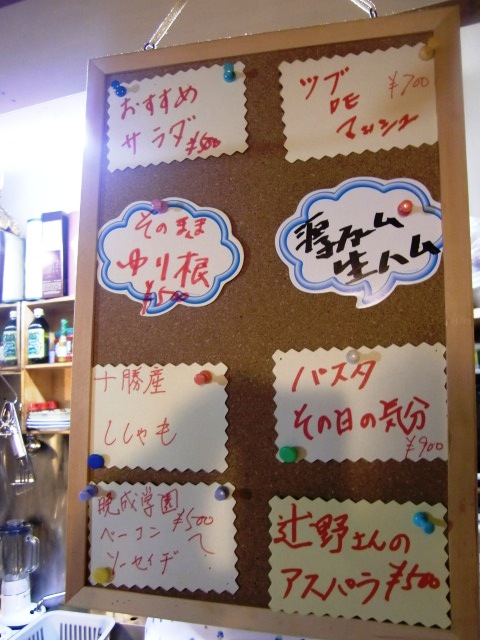 おすすめ
サラダ ¥500
ツブ ¥700
DE
マッシュ
そのまま
ゆり根
¥500
生ハム
十勝産
ししゃも
パスタ
その日の気分
¥900
晩成学園
ベーコン ¥500〜
ソーセイヂ
辻野さんの
アスパラ ¥500